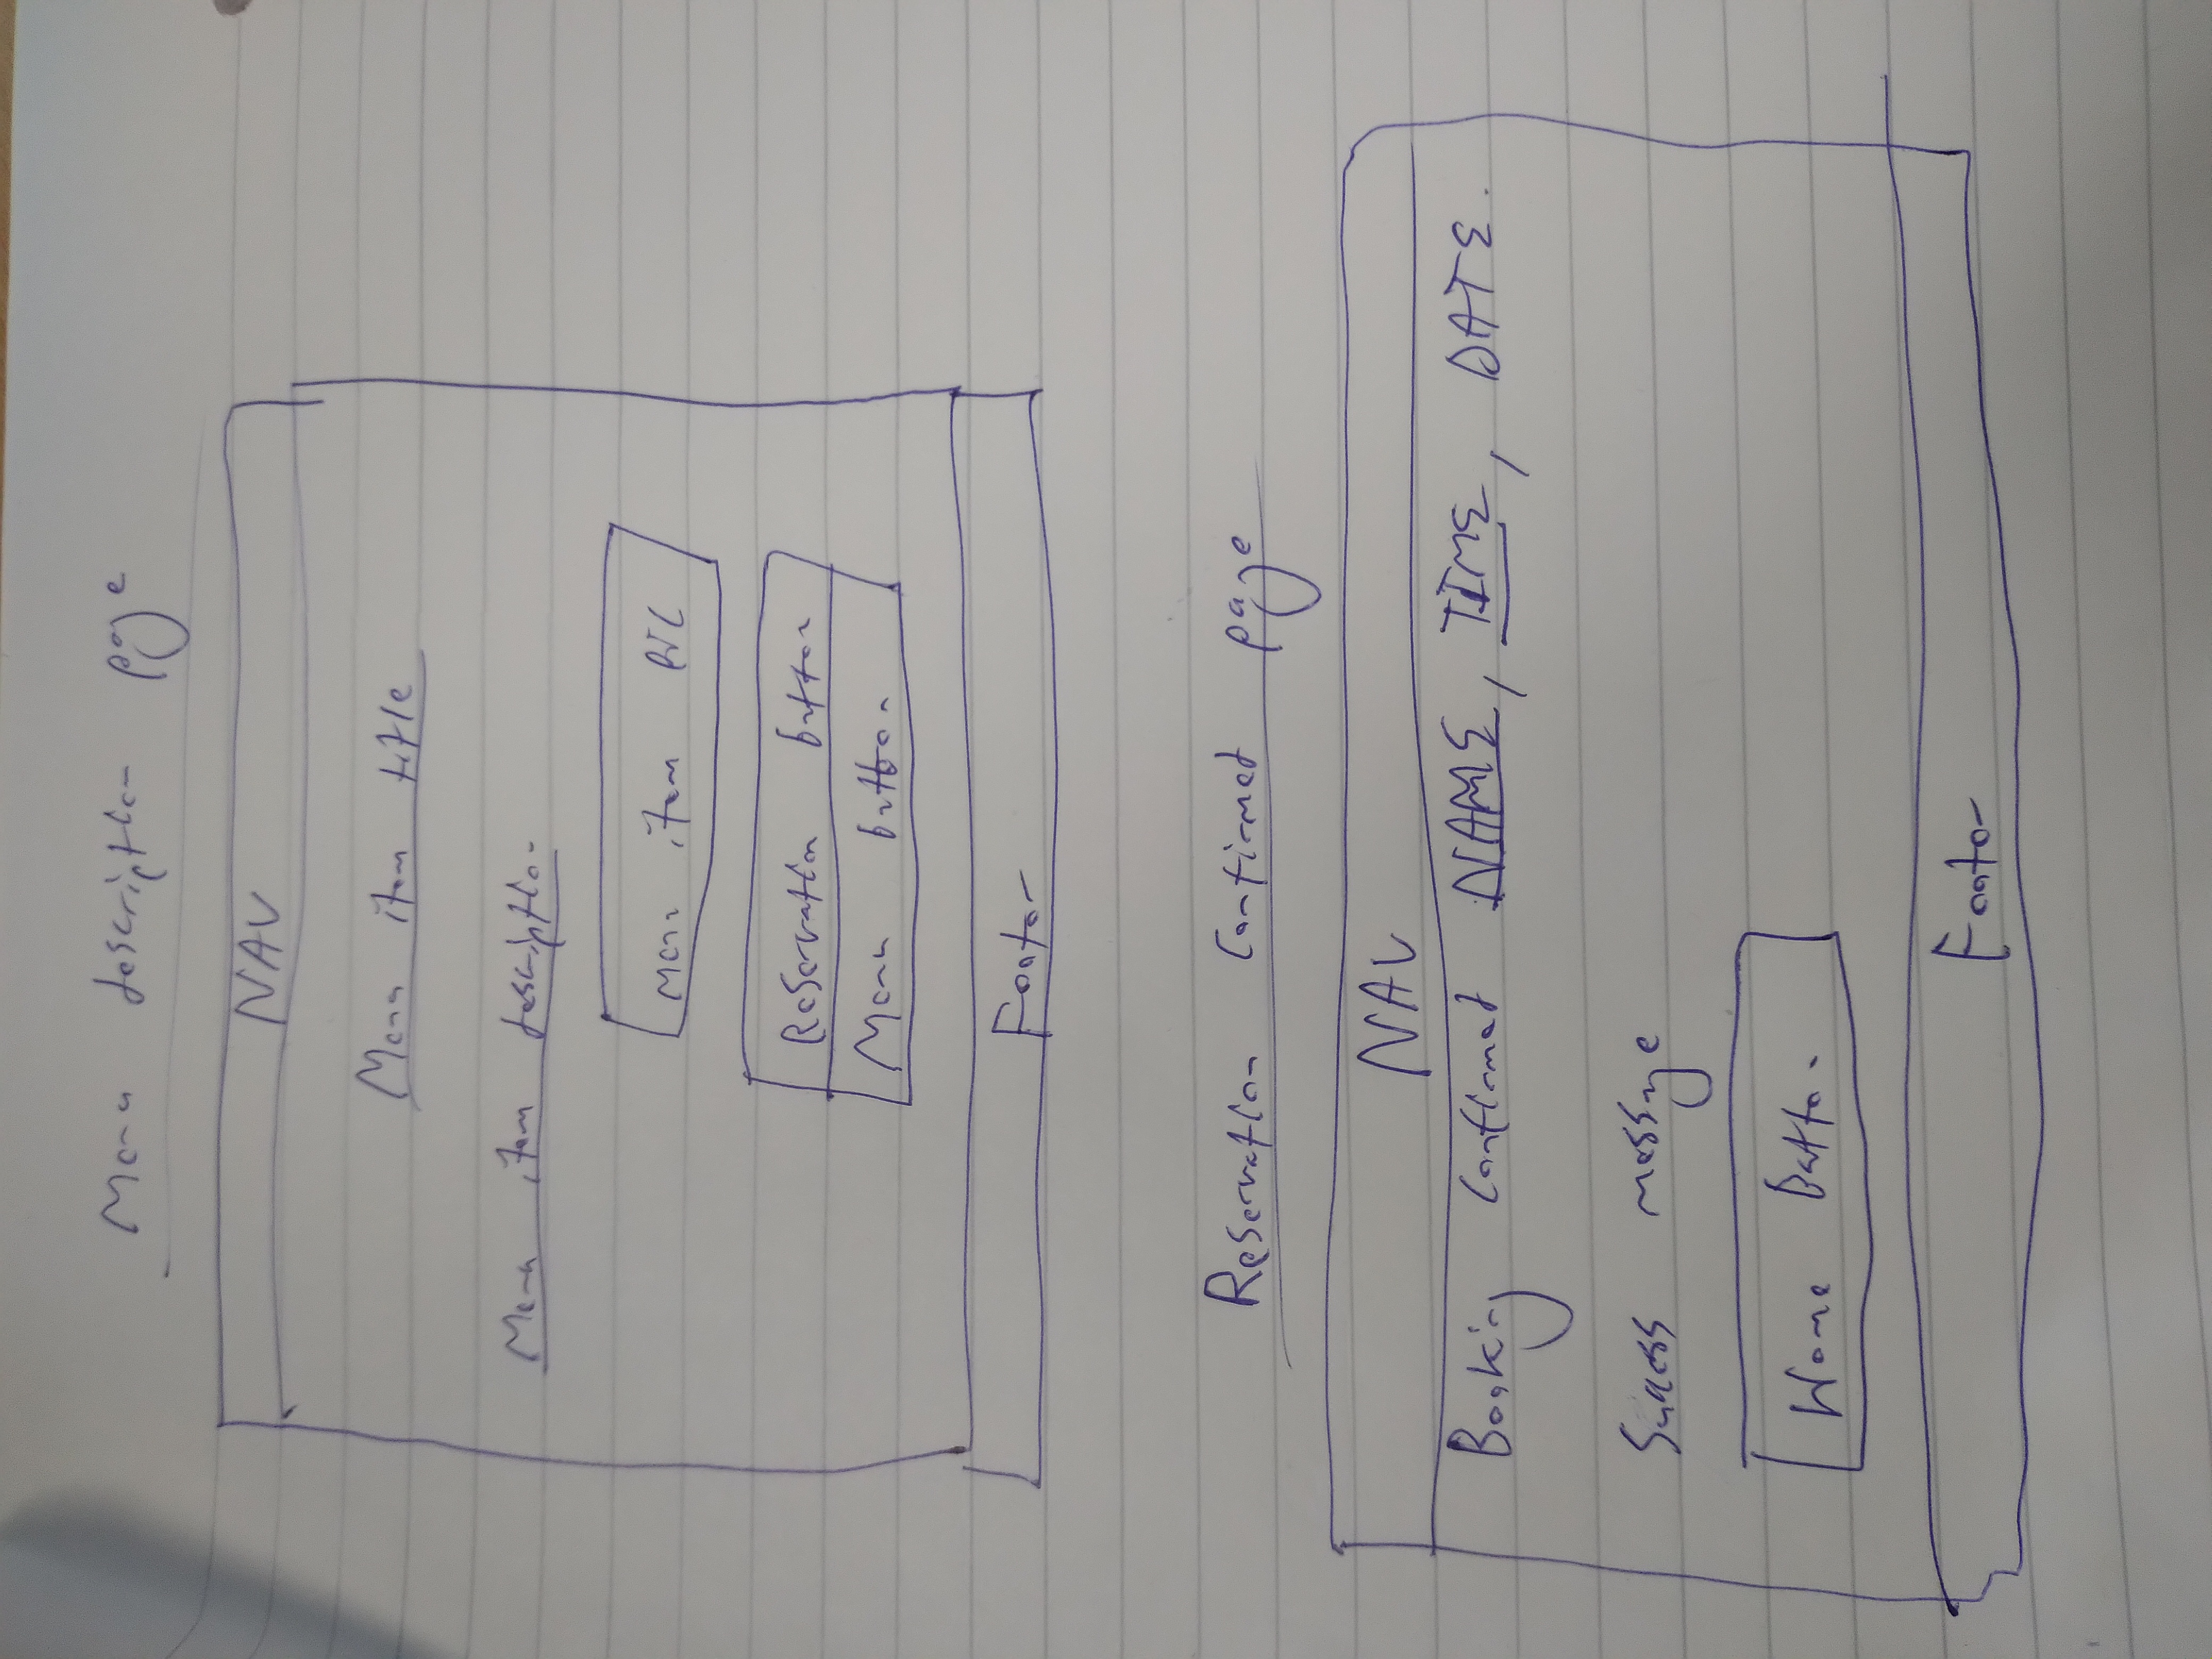 Menu description page
NAV
Menu item title
Menu item description
Menu item PIC
Reservation button
Menu button
Footer
Reservation Confirmed page
NAV
Booking Confirmed NAME, TIME, DATE.
Success message
Home Button
Footer